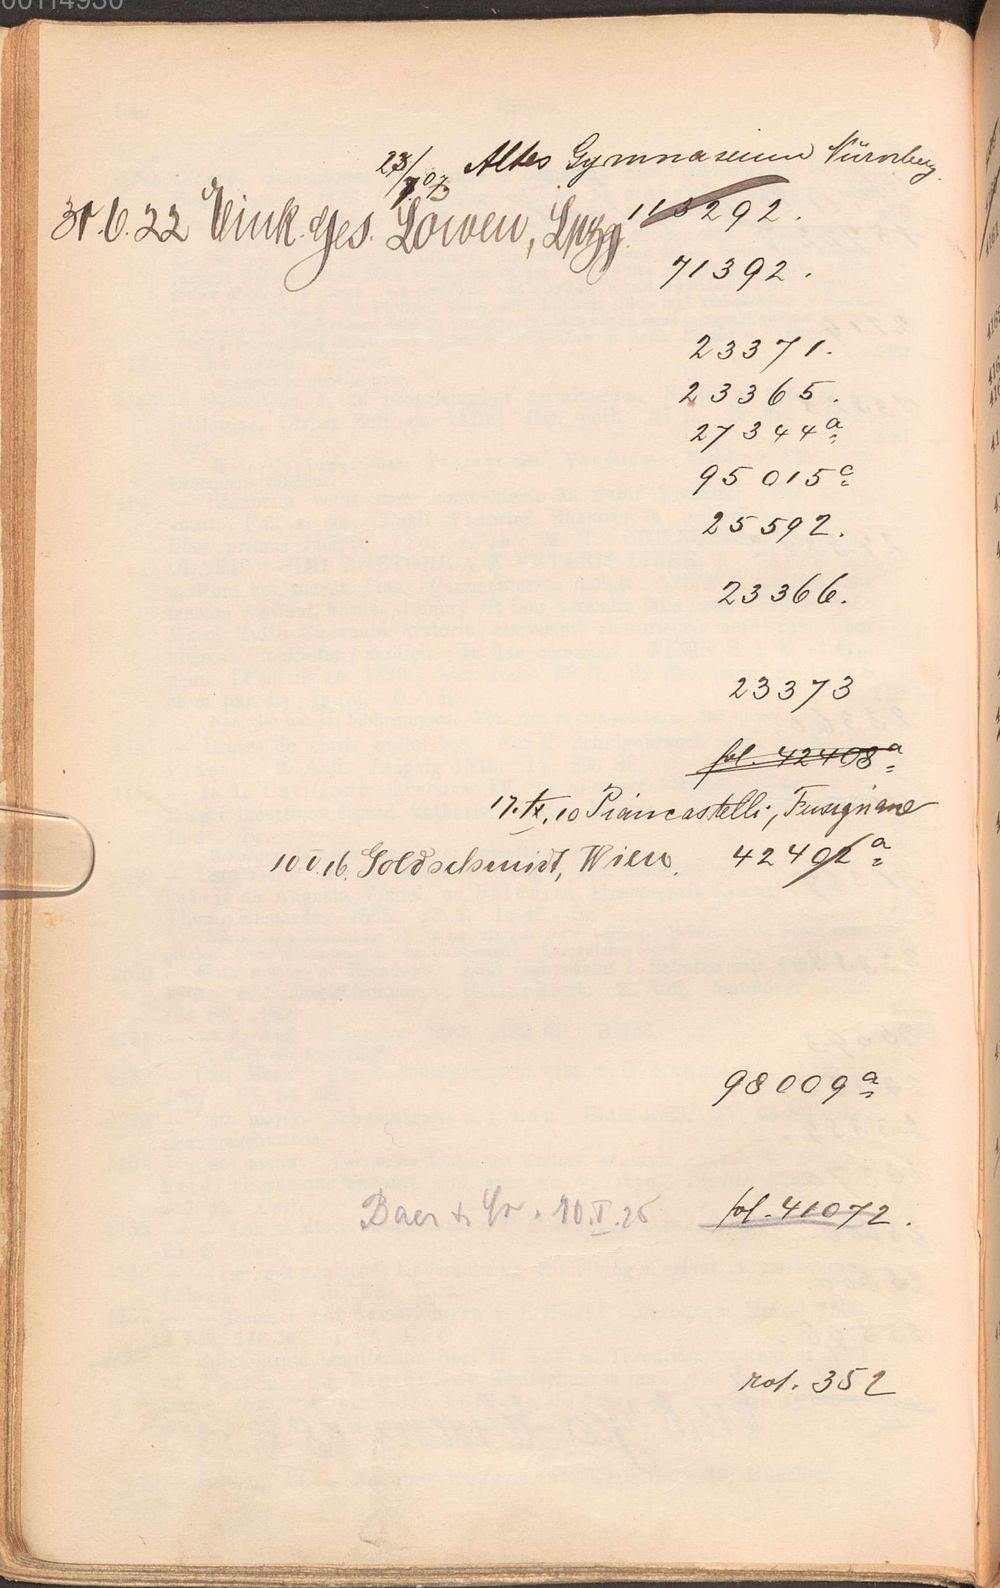 23/7 03 Altes Gymnasium Nürnberg.
113292.
31.6.22 Eink.ges. Löwen, Lpzg.
71392.
23371.
23365.
27344a
95015c
25592.
23366.
23373
fol. 42408a
17.IX.10 Piancastelli, Fusignano
10 V.16. Goldschmidt, Wien. 42402a
98009a
Baer & Co. 10.V.26 fol. 41072.
rot. 352